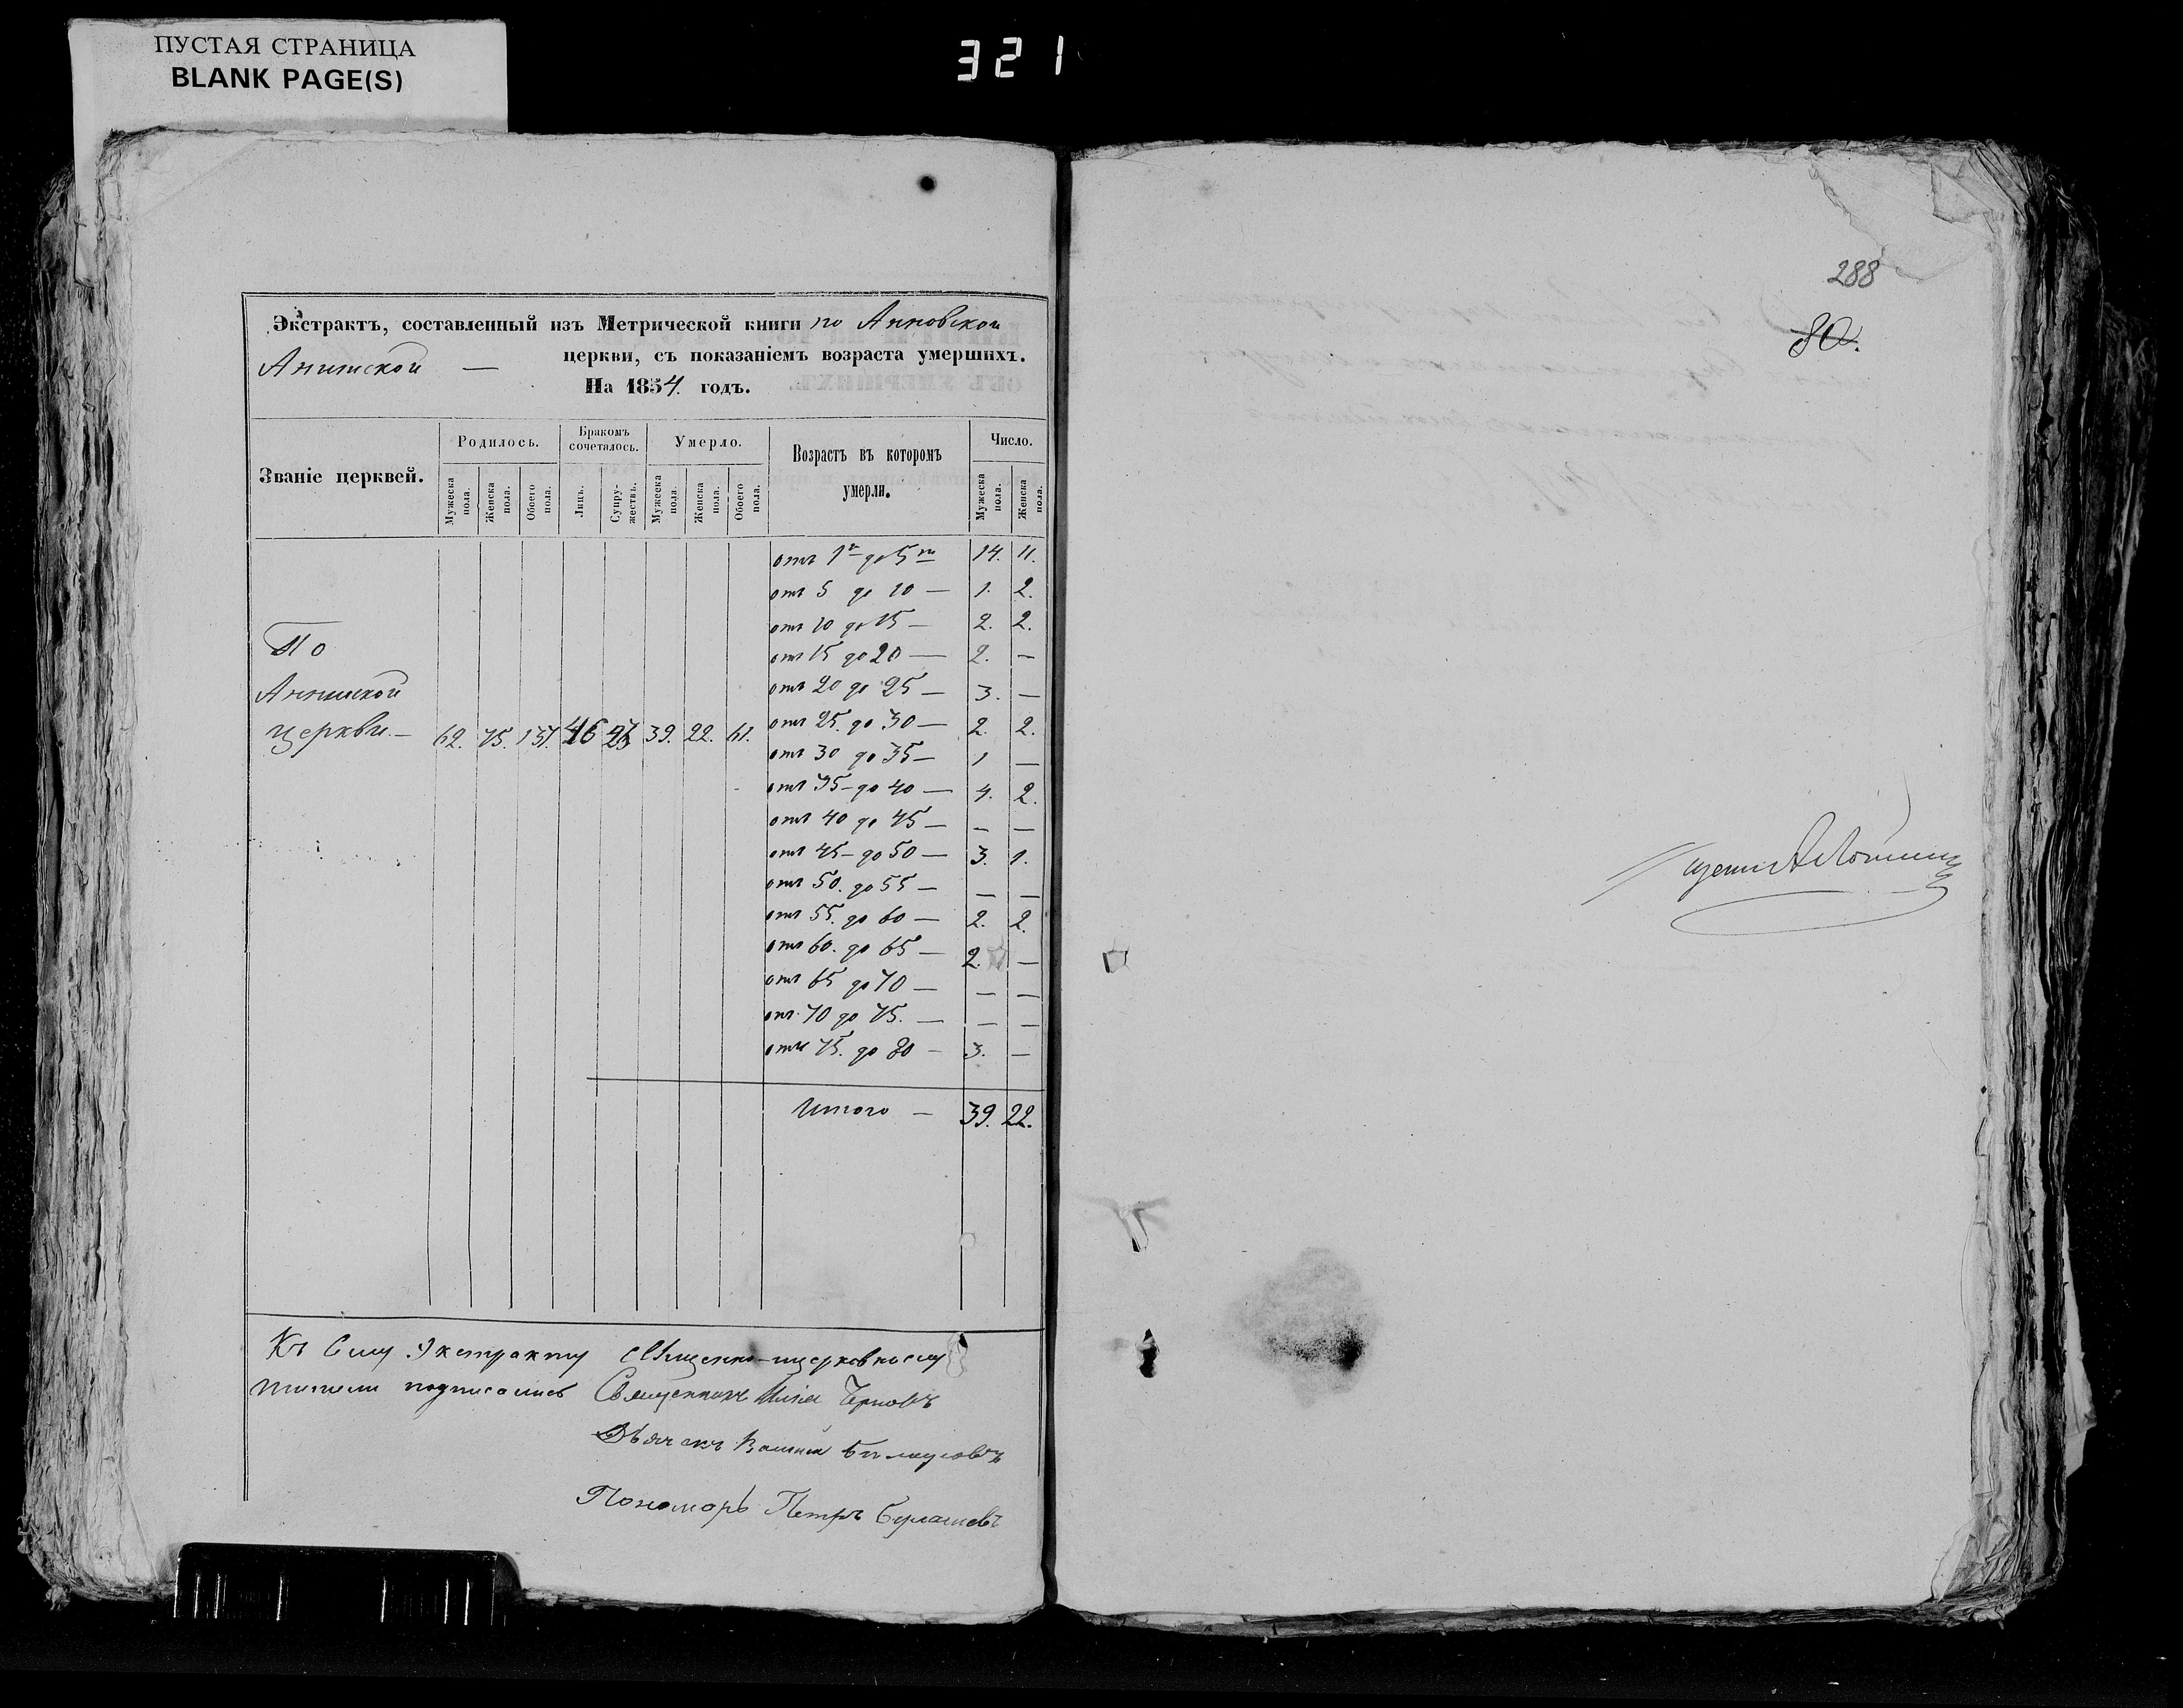 ПУСТАЯ СТРАНИЦА
BLANK PAGE(S)
321
Экстрактъ, составленный изъ Метрической книги по Анновской
Аннинской — церкви, съ показаніемъ возраста умершихъ.
На 1854. годъ.
Званіе церквей. Родилось. Бракомъ сочеталось. Умерло. Возрастъ въ которомъ умерли. Число.
Мужеска пола. Женска пола. Обоего пола. Лицъ. Супружествъ. Мужеска пола. Женска пола. Обоего пола. Мужеска пола. Женска пола.
отъ 1го до 5ти 14. 11.
отъ 5 до 10 — 1. 2.
отъ 10 до 15 — 2. 2.
отъ 15 до 20 — 2. —
отъ 20 до 25 — 3. —
По
Аннинской
церкви — 62. 75. 137. 46 23 39. 22. 61. отъ 25. до 30 — 2. 2.
отъ 30 до 35 — 1 —
отъ 35 — до 40 — 4. 2.
отъ 40 до 45 — — —
отъ 45 — до 50 — 3. 1.
отъ 50. до 55 — — —
отъ 55. до 60 — 2. 2.
отъ 60. до 65 — 2. —
отъ 65 до 70 — — —
отъ 70 до 75. — — —
отъ 75. до 80 — 3. —
Итого — 39. 22.
Къ Сему Экстракту Священно-церковнослу
жители подписались Священникъ Черновъ
Дьячекъ
Пономарь Петръ
288
80.